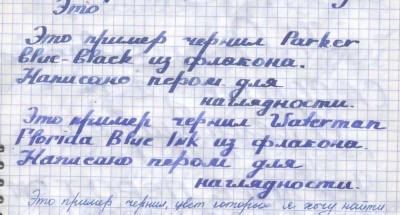 Это
Это пример чернил Parker
Blue-Black из флакона.
Написано пером для
наглядности.
Это пример чернил Waterman
Florida Blue Ink из флакона.
Написано пером для
наглядности.
Это пример чернил, цвет которых я хочу найти